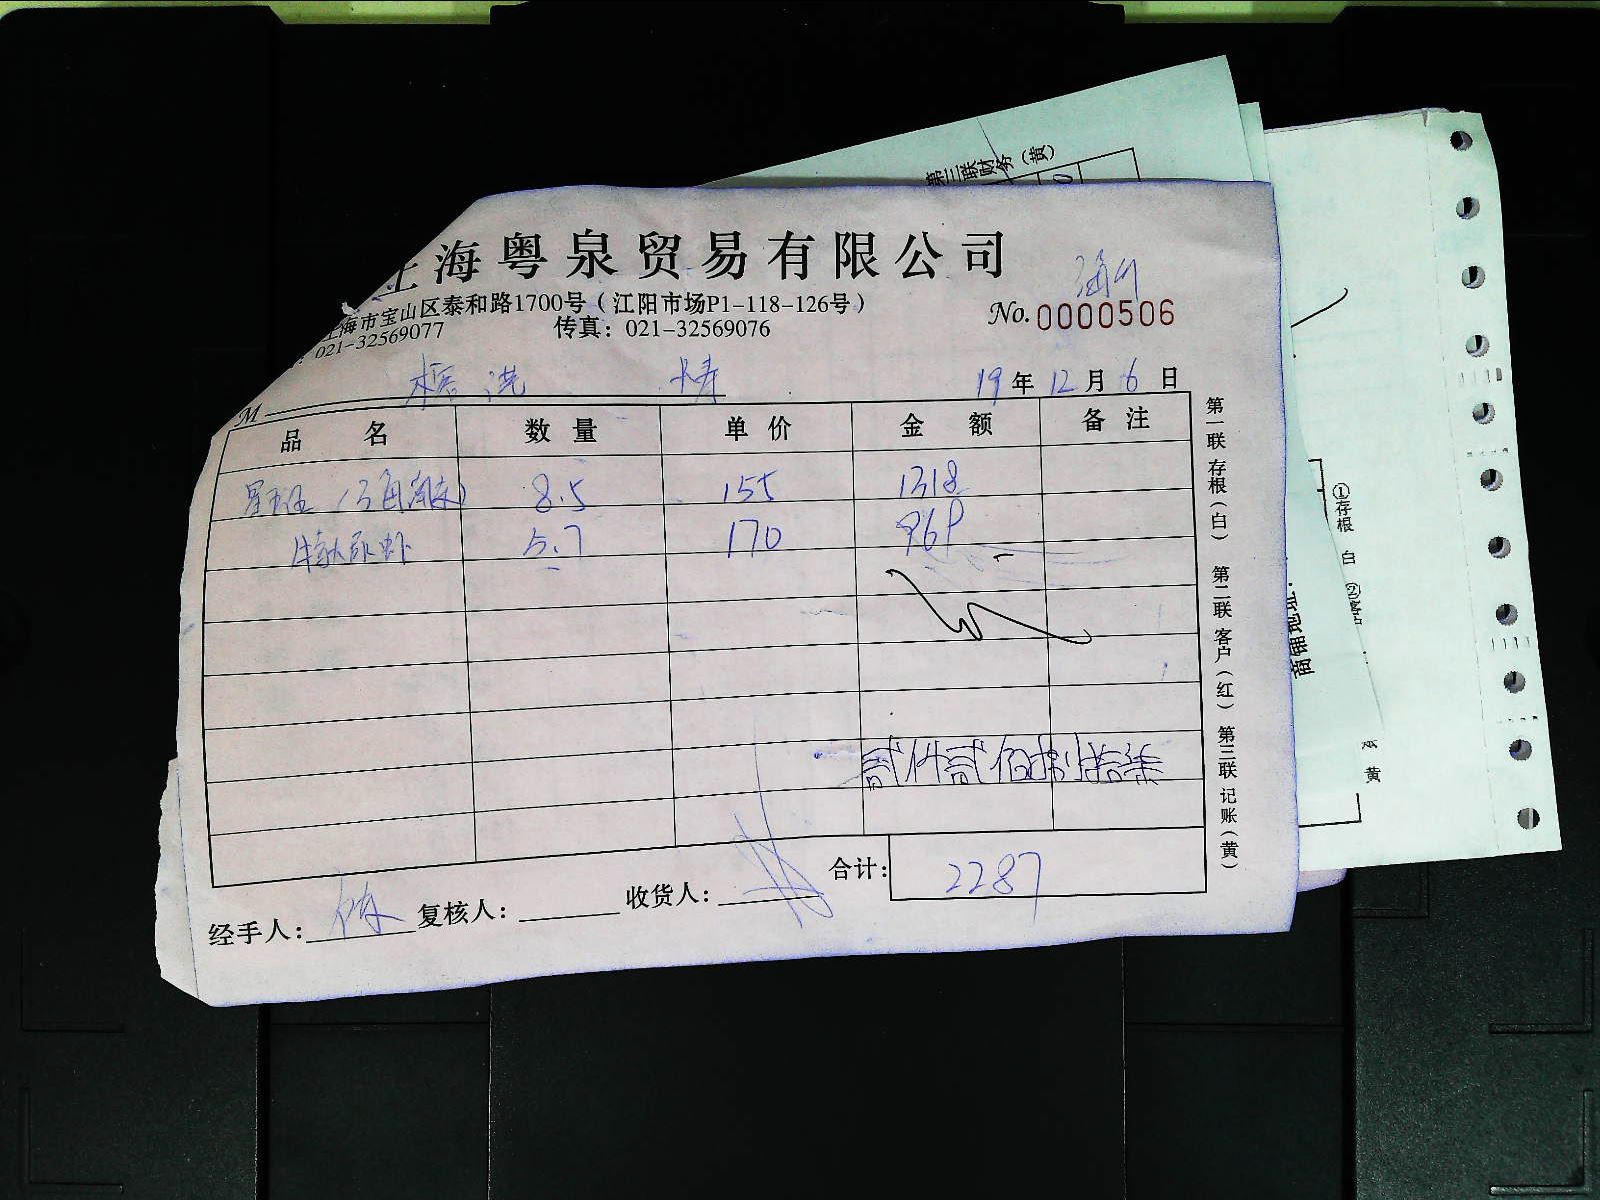 第三联财务（黄）
上海粤泉贸易有限公司
上海市宝山区泰和路1700号（江阳市场P1-118-126号）
：021-32569077 传真：021-32569076
No.0000506
M
19年12月6日
品名 数量 单价 金额 备注
8.5 155 1318
5.7 170 969
贰仟贰佰捌拾柒
合计：2287
经手人： 复核人： 收货人：
第一联存根（白） 第二联客户（红） 第三联记账（黄）
①存根 白 ②客
商铺地址：
黄